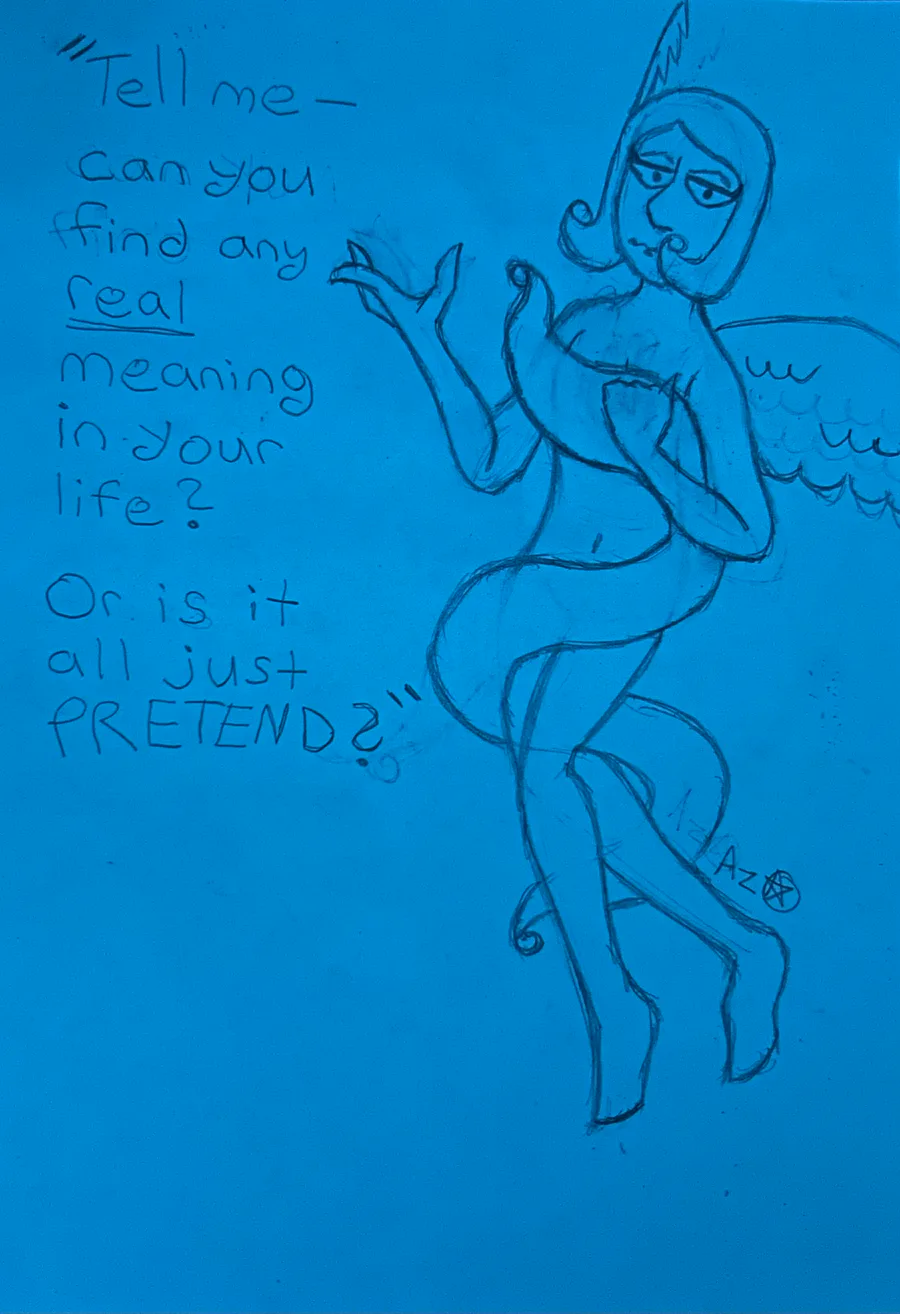 "Tell me —
can you
find any
real
meaning
in your
life?
Or is it
all just
PRETEND?"
Az